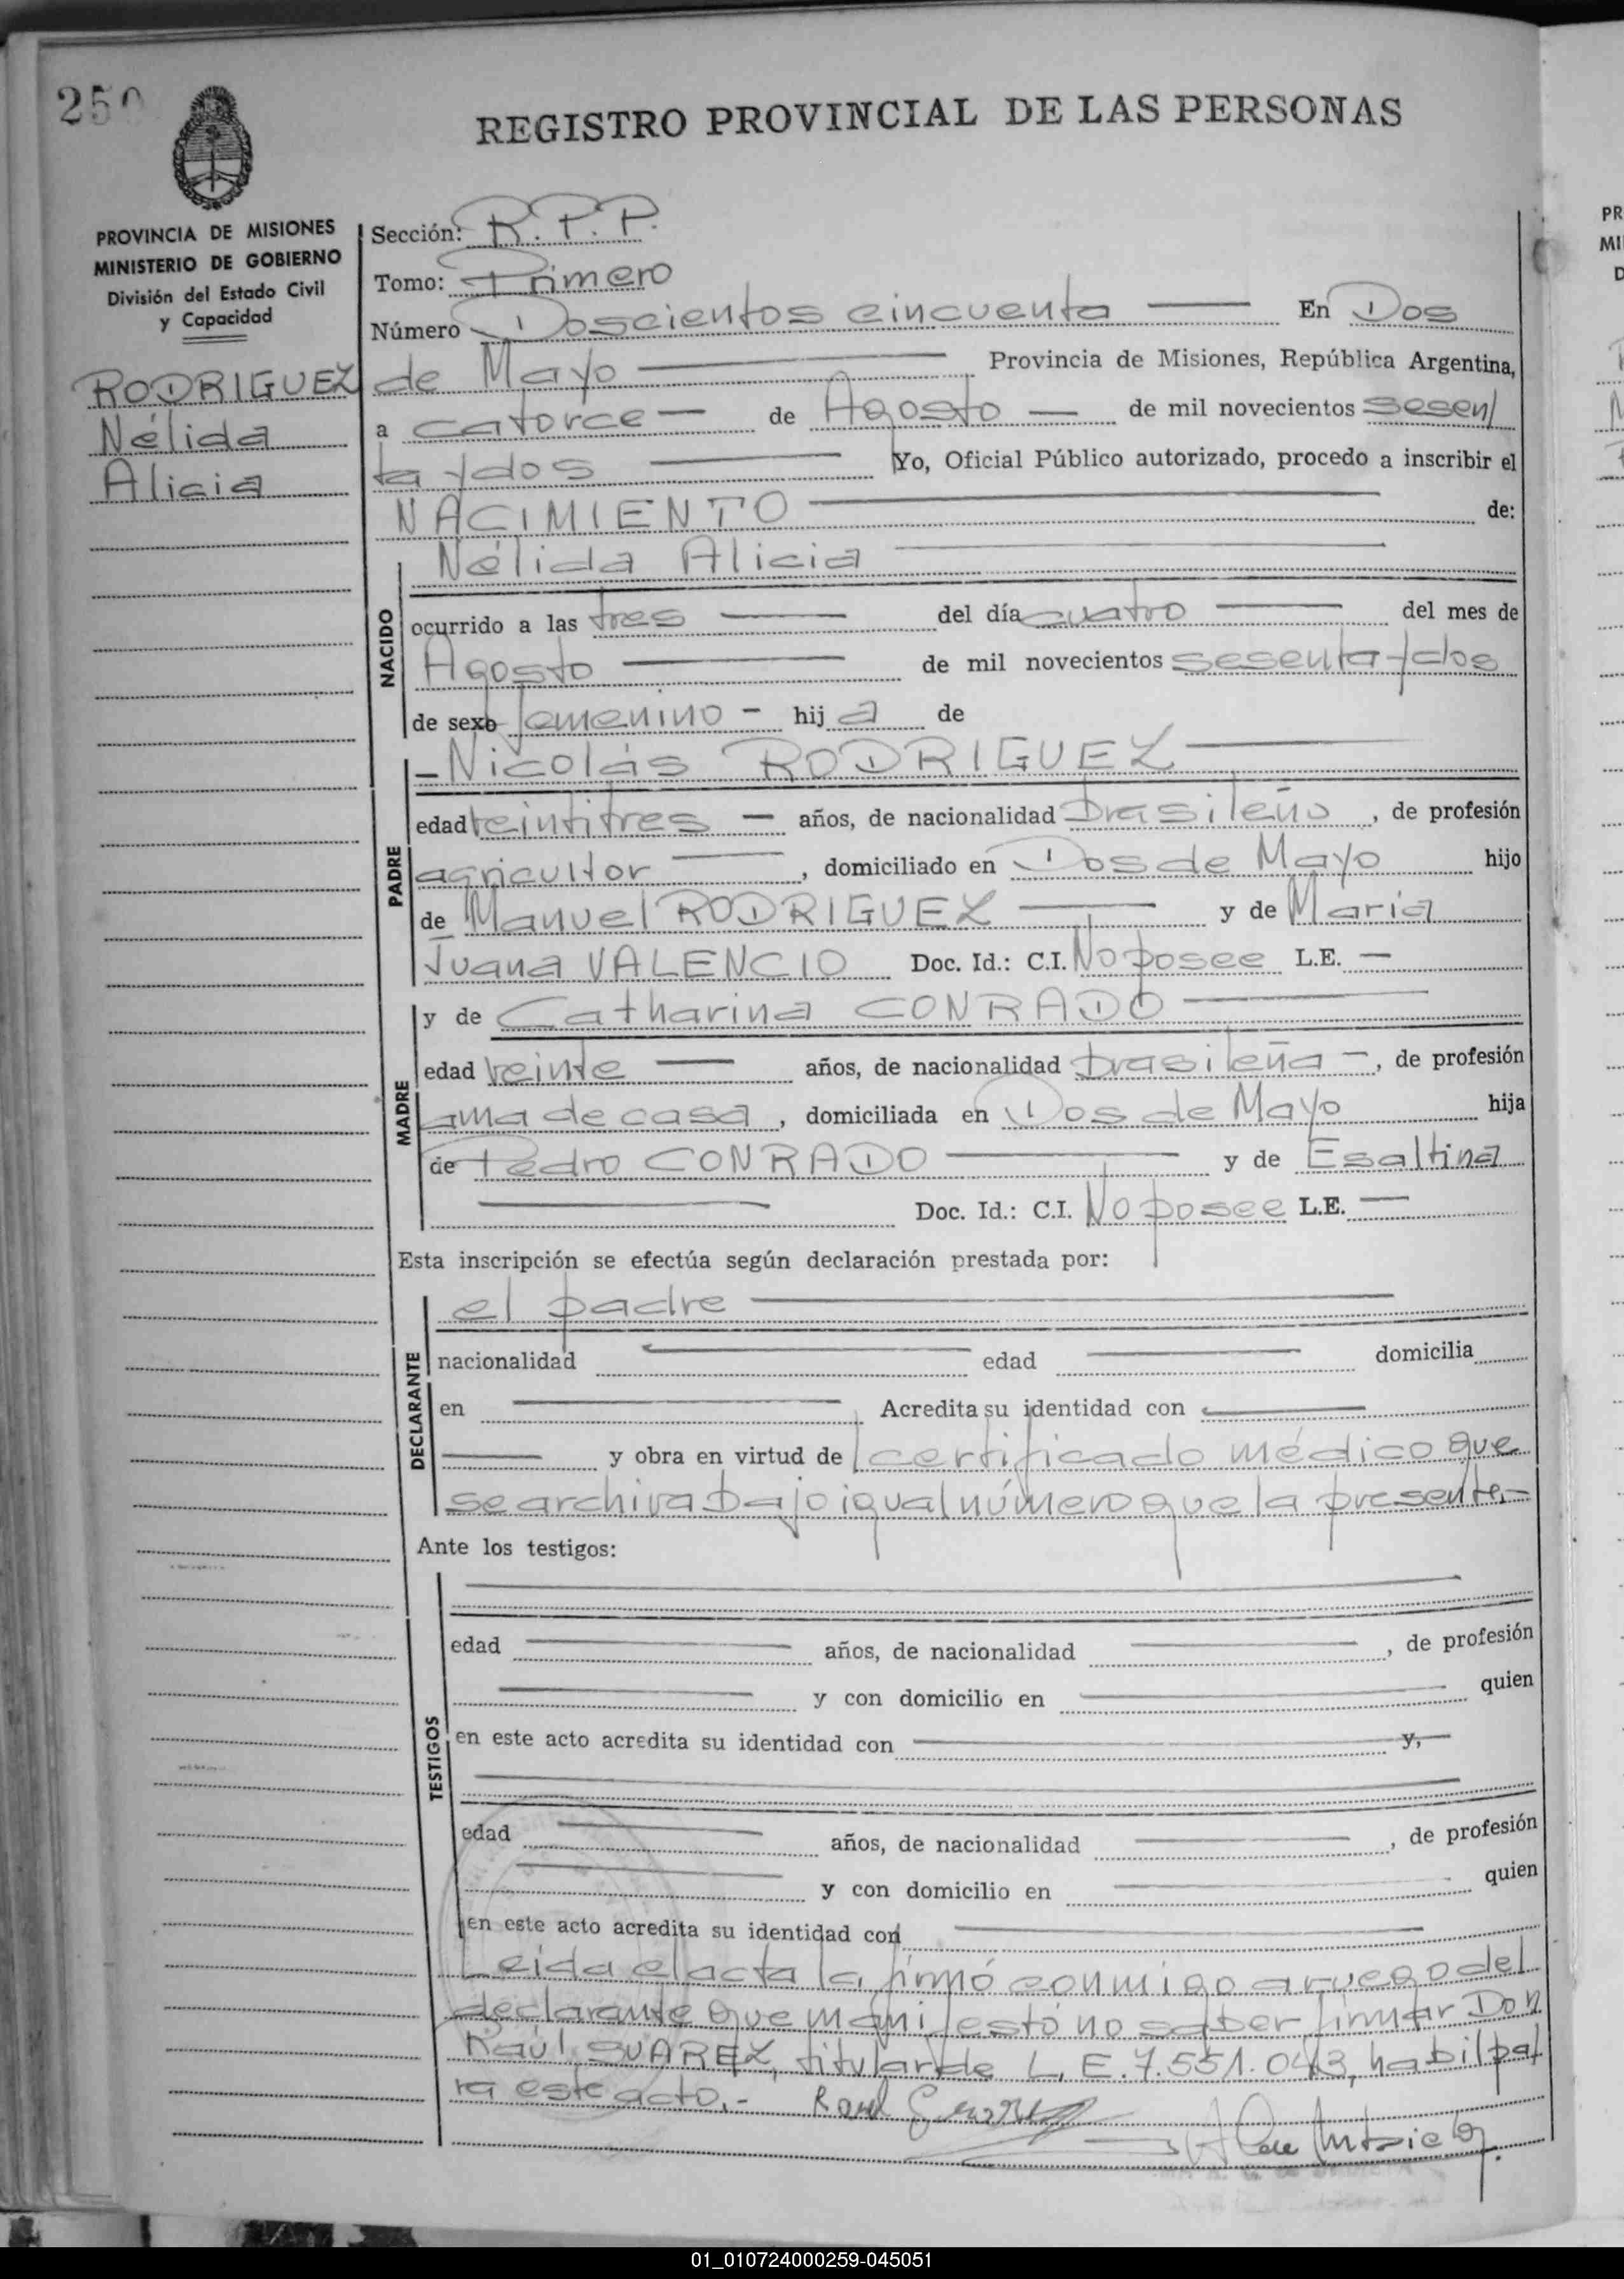 250
REGISTRO PROVINCIAL DE LAS PERSONAS
PROVINCIA DE MISIONES
MINISTERIO DE GOBIERNO
División del Estado Civil
y Capacidad
RODRIGUEZ
Nélida
Alicia
Sección: R.P.P.
Tomo: Primero
Número Doscientos cincuenta En Dos
de Mayo Provincia de Misiones, República Argentina,
a catorce de Agosto de mil novecientos sesen/
ta y dos Yo, Oficial Público autorizado, procedo a inscribir el
NACIMIENTO de:
NACIDO
Nélida Alicia
ocurrido a las tres del día cuatro del mes de
Agosto de mil novecientos sesenta y dos
de sexo femenino - hij a de
PADRE
Nicolás RODRIGUEZ
edad veintitres años, de nacionalidad brasileño, de profesión
agricultor, domiciliado en Dos de Mayo hijo
de Manuel RODRIGUEZ y de Maria
Juana VALENCIO Doc. Id.: C.I. No posee L.E. —
MADRE
y de Catharina CONRADO
edad veinte años, de nacionalidad brasileña, de profesión
ama de casa, domiciliada en Dos de Mayo hija
de Pedro CONRADO y de Esaltina
Doc. Id.: C.I. No posee L.E. —
Esta inscripción se efectúa según declaración prestada por:
DECLARANTE
el padre
nacionalidad edad domicilia
en Acredita su identidad con
y obra en virtud de certificado médico que
se archiva bajo igual número que la presente.-
Ante los testigos:
TESTIGOS
edad años, de nacionalidad , de profesión
y con domicilio en quien
en este acto acredita su identidad con y,
edad años, de nacionalidad , de profesión
y con domicilio en quien
en este acto acredita su identidad con
Leida el acta la firmó conmigo a ruego del
declarante que manifestó no saber firmar Don
Raúl SUAREZ, titular de L.E. 7.551.043, habil pa/
ra este acto.-
PR
MI
D
01_010724000259-045051